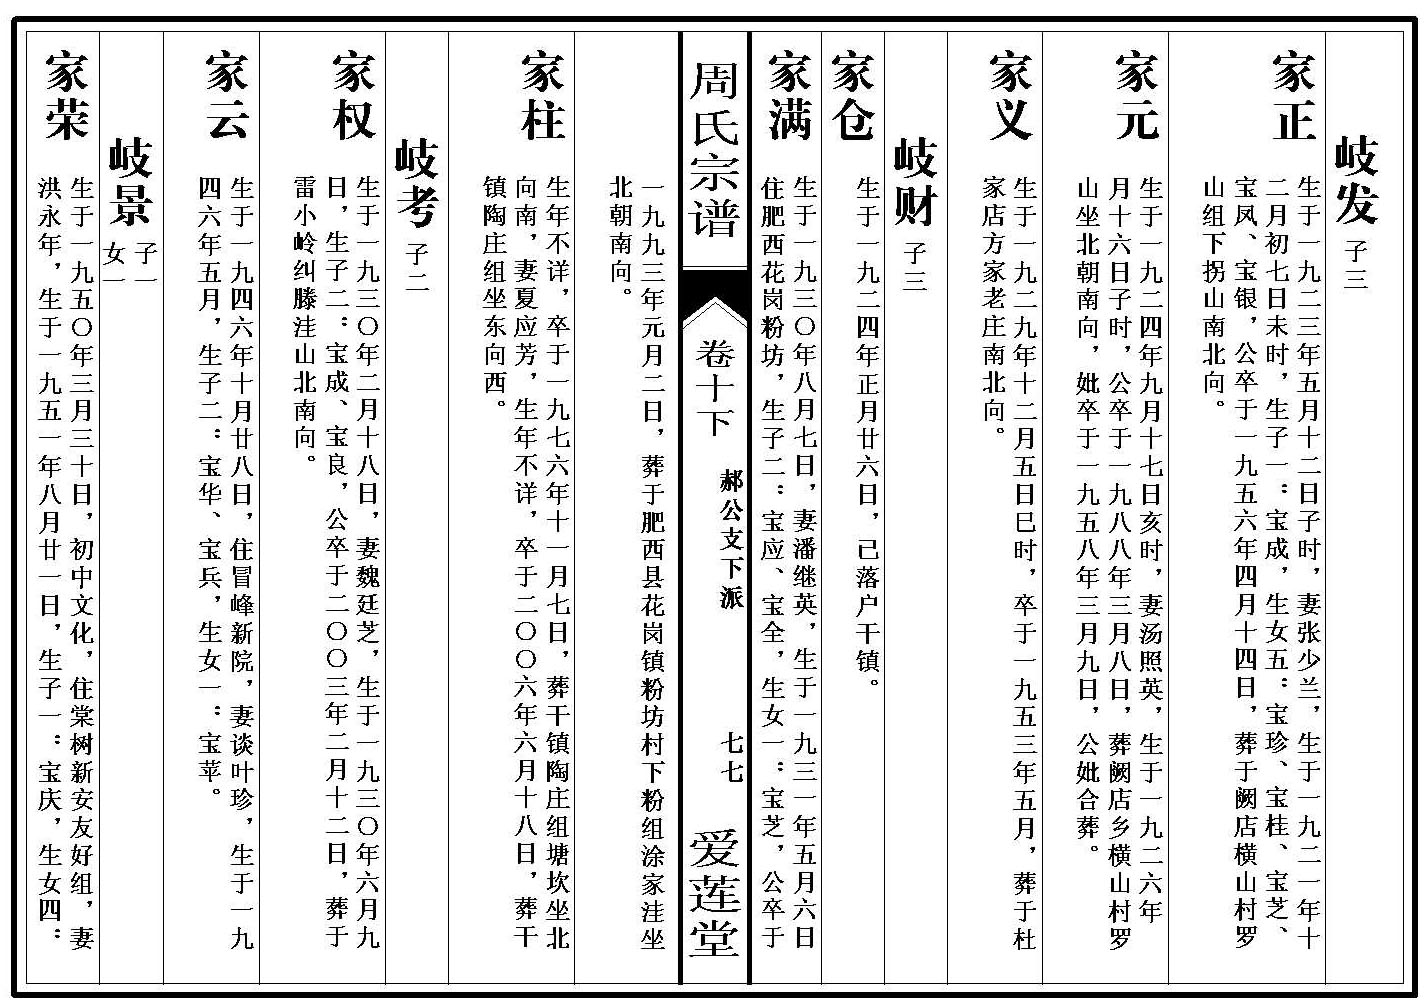 岐发 子三
家正
生于一九二三年五月十二日子时，妻张少兰，生于一九二一年十
二月初七日未时，生子一：宝成，生女五：宝珍、宝桂、宝芝、
宝凤、宝银，公卒于一九五六年四月十四日，葬于阙店横山村罗
山组下拐山南北向。
家元
生于一九二四年九月十七日亥时，妻汤照英，生于一九二六年
月十六日子时，公卒于一九八八年三月八日，葬阙店乡横山村罗
山坐北朝南向，妣卒于一九五八年三月九日，公妣合葬。
家义
生于一九二九年十二月五日巳时，卒于一九五三年五月，葬于杜
家店方家老庄南北向。
岐财 子三
家仓
生于一九二四年正月廿六日，己落户干镇。
家满
生于一九三〇年八月七日，妻潘继英，生于一九三一年五月六日
住肥西花岗粉坊，生子二：宝应、宝全，生女一：宝芝，公卒于
周氏宗谱
卷十下
郝公支下派
七七
爱莲堂
一九九三年元月二日，葬于肥西县花岗镇粉坊村下粉组涂家洼坐
北朝南向。
家柱
生年不详，卒于一九七六年十一月七日，葬干镇陶庄组塘坎坐北
向南，妻夏应芳，生年不详，卒于二〇〇六年六月十八日，葬干
镇陶庄组坐东向西。
岐考 子二
家权
生于一九三〇年二月十八日，妻魏廷芝，生于一九三〇年六月九
日，生子二：宝成、宝良，公卒于二〇〇三年二月十二日，葬于
雷小岭纠滕洼山北南向。
家云
生于一九四六年十月廿八日，住冒峰新院，妻谈叶珍，生于一九
四六年五月，生子二：宝华、宝兵，生女一：宝苹。
岐景 子一 女一
家荣
生于一九五〇年三月三十日，初中文化，住棠树新安友好组，妻
洪永年，生于一九五一年八月廿一日，生子一：宝庆，生女四：